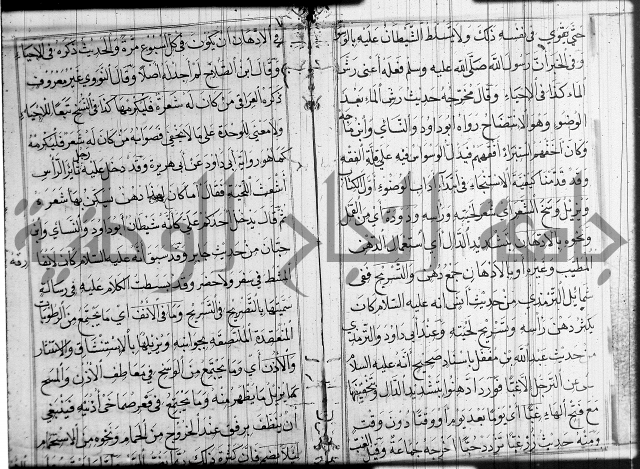 حتى يقوى في نفسه ذلك ولا يتسلط الشيطان عليه بالوسواس
وفي الخبر ان رسول الله صلى الله عليه وسلم فعله اعنى رش
الماء كذا في الاحياء وقال مخرجه حديث رش الماء بعد
الوضوء وهو الانتضاح رواه ابو داود والنسائي وابن ماجه
وكان اخفهم استبراء افقههم فيدل الوسوس فيه على قلة الفقه
وقد قدمنا كيفية الاستنجاء في ابتداء آداب الوضوء اول الكتاب
ويزيل وسخ الشعر اي شعر لحيته ورأسه ودوده اي من القمل
ونحوه بالادهان بتشديد الدال اي استعمال الدهن
المطيب وغيره او بالادهان جمع دهن والتسريح ففي
شمائل الترمذي من حديث انس انه عليه السلام كان
يكثر دهن رأسه وتسريح لحيته وعند ابي داود والترمذي
من حديث عبد الله بن مغفل باسناد صحيح انه عليه السلام
نهى عن الترجل الا غبا فورد ادهنوا بتشديد الدال وتخفيفها
مع فتح الهاء غبا اي يوما بعد يوم او وقتا دون وقت
ومنه حديث زر غبا تزدد حبا اخرجه جماعة وقيل
في الادهان ان يكون في كل اسبوع مرة والحديث ذكره في الاحياء
وقال ابن الصلاح لم اجد له اصلا وقال النووي غير معروف
ذكره العراقي من كان له شعرة فليكرمها كذا في النسخ تبعا للاحياء
ولا معنى للوحدة على ما لا يخفى فصوابه من كان له شعر فليكرمه
كما هو رواية ابي داود عن ابي هريرة وقد دخل عليه رجل ثائر الرأس
اشعث اللحية فقال اما كان لهذا دهن يسكن بها شعره
ثم قال يدخل احدكم على كأنه شيطان ابو داود والنسائي وابن
حبان من حديث جابر وقد سبق انه عليه السلام كان لا يفارقه
المشط في سفر ولا حضر وقد بسطت الكلام عليه في رسالة
سميتها بالتصريح في التسريح وما في الانف اي ما يجتمع من الرطوبات
المنعقدة الملتصقة بجوانبه ويزيلها بالاستنشاق والاستنثار
والاذن اي وما يجتمع من الوسخ في معاطف الاذن والمسح
كما يزيل ما يظهر منه وما يجتمع في قعر صماخى اذنيه فينبغي
ان ينظف برفق عند الخروج من الحمام ونحوه من الاستحمام